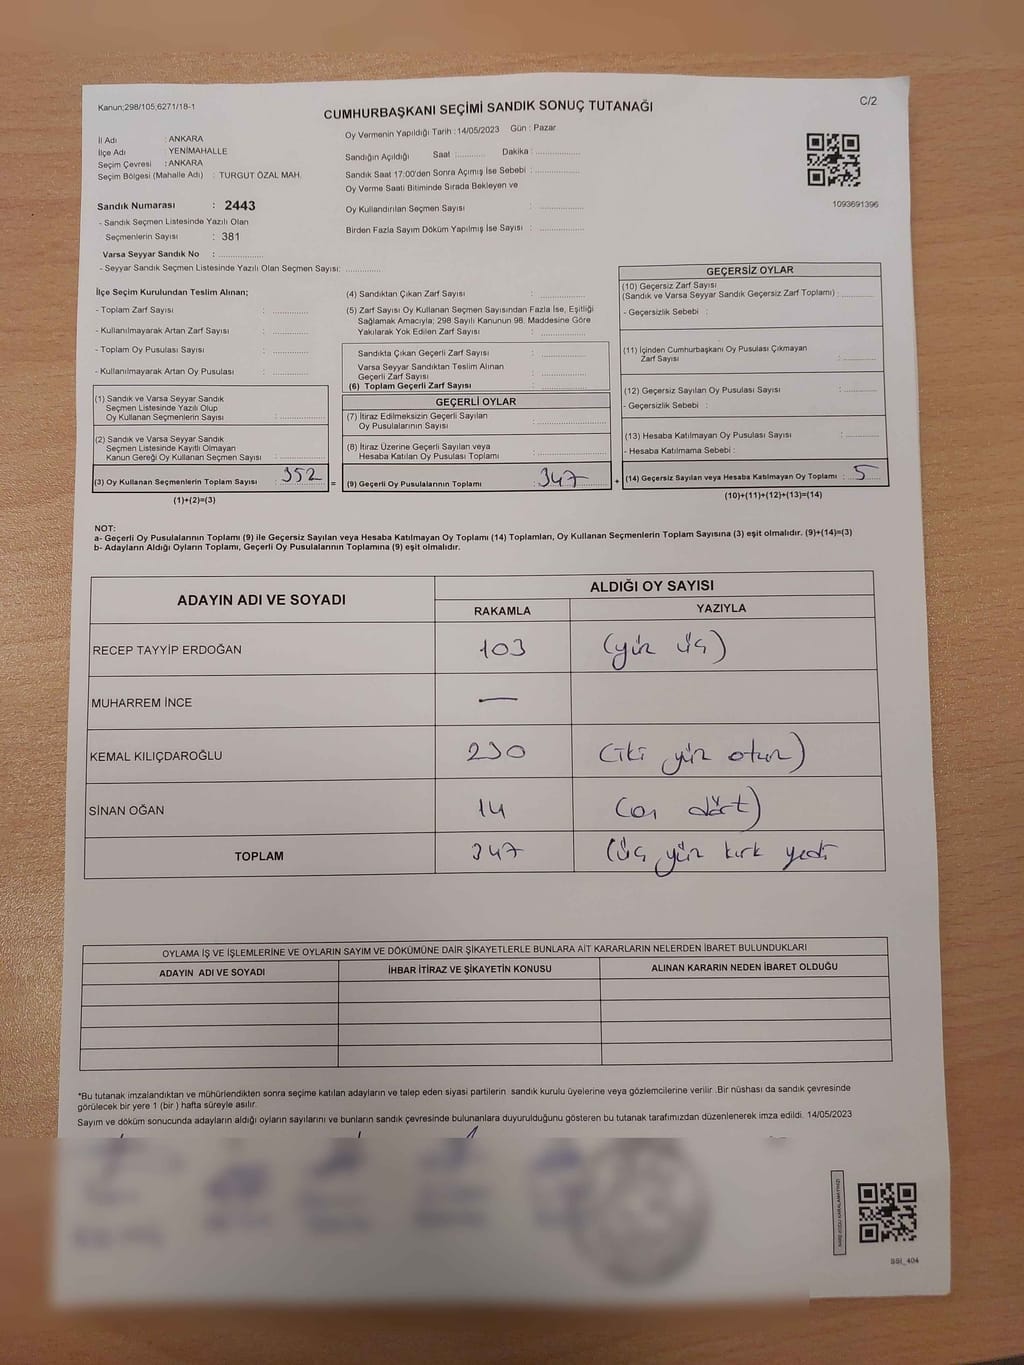 Kanun;298/105,6271/18-1
CUMHURBAŞKANI SEÇİMİ SANDIK SONUÇ TUTANAĞI
C/2
İl Adı : ANKARA
İlçe Adı : YENİMAHALLE
Seçim Çevresi : ANKARA
Seçim Bölgesi (Mahalle Adı) : TURGUT ÖZAL MAH.
Oy Vermenin Yapıldığı Tarih : 14/05/2023 Gün : Pazar
Sandığın Açıldığı Saat : ............ Dakika : ................
Sandık Saat 17:00'den Sonra Açımış İse Sebebi : ................
Oy Verme Saati Bitiminde Sırada Bekleyen ve
Oy Kullandırılan Seçmen Sayısı : ................
Birden Fazla Sayım Döküm Yapılmış İse Sayısı : ................
1093691396
Sandık Numarası : 2443
- Sandık Seçmen Listesinde Yazılı Olan
Seçmenlerin Sayısı : 381
Varsa Seyyar Sandık No : ................
- Seyyar Sandık Seçmen Listesinde Yazılı Olan Seçmen Sayısı: ............
İlçe Seçim Kurulundan Teslim Alınan;
- Toplam Zarf Sayısı : ............
- Kullanılmayarak Artan Zarf Sayısı : ............
- Toplam Oy Pusulası Sayısı : ............
- Kullanılmayarak Artan Oy Pusulası : ............
(1) Sandık ve Varsa Seyyar Sandık
Seçmen Listesinde Yazılı Olup
Oy Kullanan Seçmenlerin Sayısı : ................
(2) Sandık ve Varsa Seyyar Sandık
Seçmen Listesinde Kayıtlı Olmayan
Kanun Gereği Oy Kullanan Seçmen Sayısı : ................
(3) Oy Kullanan Seçmenlerin Toplam Sayısı : 352 =
(1)+(2)=(3)
(4) Sandıktan Çıkan Zarf Sayısı : ................
(5) Zarf Sayısı Oy Kullanan Seçmen Sayısından Fazla İse, Eşitliği
Sağlamak Amacıyla; 298 Sayılı Kanunun 98. Maddesine Göre
Yakılarak Yok Edilen Zarf Sayısı : ................
Sandıkta Çıkan Geçerli Zarf Sayısı : ................
Varsa Seyyar Sandıktan Teslim Alınan
Geçerli Zarf Sayısı : ................
(6) Toplam Geçerli Zarf Sayısı : ................
GEÇERLİ OYLAR
(7) İtiraz Edilmeksizin Geçerli Sayılan
Oy Pusulalarının Sayısı : ................
(8) İtiraz Üzerine Geçerli Sayılan veya
Hesaba Katılan Oy Pusulası Toplamı : ................
(9) Geçerli Oy Pusulalarının Toplamı : 347 +
GEÇERSİZ OYLAR
(10) Geçersiz Zarf Sayısı
(Sandık ve Varsa Seyyar Sandık Geçersiz Zarf Toplamı) : ............
- Geçersizlik Sebebi :
(11) İçinden Cumhurbaşkanı Oy Pusulası Çıkmayan
Zarf Sayısı : ............
(12) Geçersiz Sayılan Oy Pusulası Sayısı : ............
- Geçersizlik Sebebi :
(13) Hesaba Katılmayan Oy Pusulası Sayısı : ............
- Hesaba Katılmama Sebebi :
(14) Geçersiz Sayılan veya Hesaba Katılmayan Oy Toplamı : 5
(10)+(11)+(12)+(13)=(14)
NOT:
a- Geçerli Oy Pusulalarının Toplamı (9) ile Geçersiz Sayılan veya Hesaba Katılmayan Oy Toplamı (14) Toplamları, Oy Kullanan Seçmenlerin Toplam Sayısına (3) eşit olmalıdır. (9)+(14)=(3)
b- Adayların Aldığı Oyların Toplamı, Geçerli Oy Pusulalarının Toplamına (9) eşit olmalıdır.
ADAYIN ADI VE SOYADI ALDIĞI OY SAYISI
RAKAMLA YAZIYLA
RECEP TAYYİP ERDOĞAN 103 (yüz üç)
MUHARREM İNCE —
KEMAL KILIÇDAROĞLU 230 (iki yüz otuz)
SİNAN OĞAN 14 (on dört)
TOPLAM 347 (üç yüz kırk yedi
OYLAMA İŞ VE İŞLEMLERİNE VE OYLARIN SAYIM VE DÖKÜMÜNE DAİR ŞİKAYETLERLE BUNLARA AİT KARARLARIN NELERDEN İBARET BULUNDUKLARI
ADAYIN ADI VE SOYADI İHBAR İTİRAZ VE ŞİKAYETİN KONUSU ALINAN KARARIN NEDEN İBARET OLDUĞU
*Bu tutanak imzalandıktan ve mühürlendikten sonra seçime katılan adayların ve talep eden siyasi partilerin sandık kurulu üyelerine veya gözlemcilerine verilir .Bir nüshası da sandık çevresinde
görülecek bir yere 1 (bir ) hafta süreyle asılır.
Sayım ve döküm sonucunda adayların aldığı oyların sayılarını ve bunların sandık çevresinde bulunanlara duyurulduğunu gösteren bu tutanak tarafımızdan düzenlenerek imza edildi. 14/05/2023
SSI_404